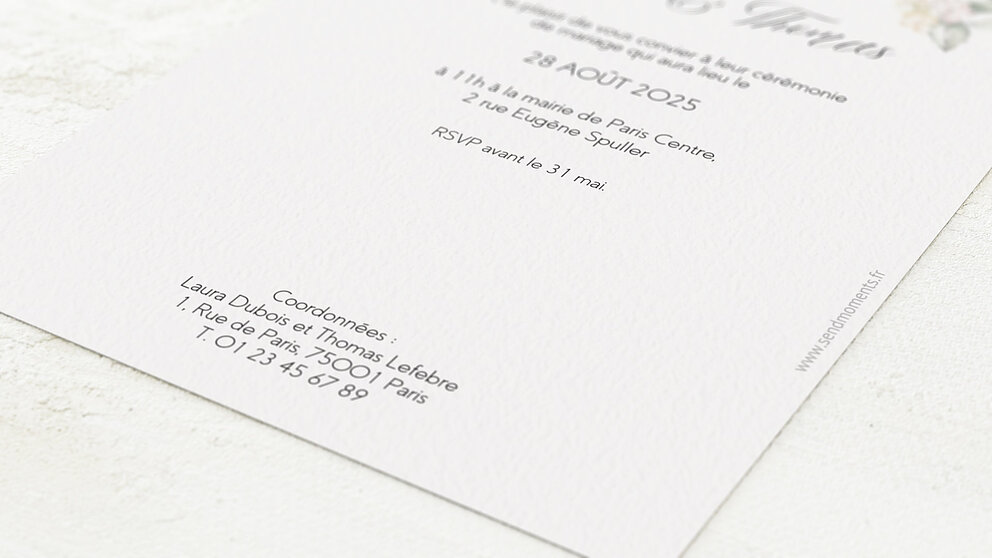 & Thomas
plaisir de vous convier à leur cérémonie
de mariage qui aura lieu le
28 AOÛT 2025
à 11h à la mairie de Paris Centre,
2 rue Eugène Spuller
RSVP avant le 31 mai.
Coordonnées :
Laura Dubois et Thomas Lefebre
1, Rue de Paris, 75001 Paris
T. 01 23 45 67 89
www.sendmoments.fr